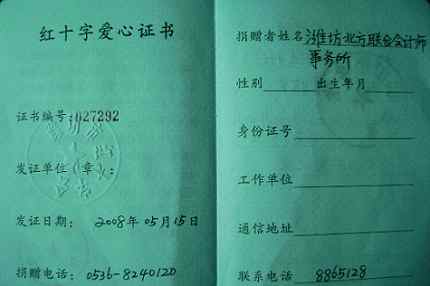 红十字爱心证书
证书编号:627292
发证单位(章):
发证日期: 2008年05月15日
捐赠电话: 0536-8240120
捐赠者姓名 潍坊北方联合会计师
事务所
性别 出生年月
身份证号
工作单位
通信地址
联系电话 8865128